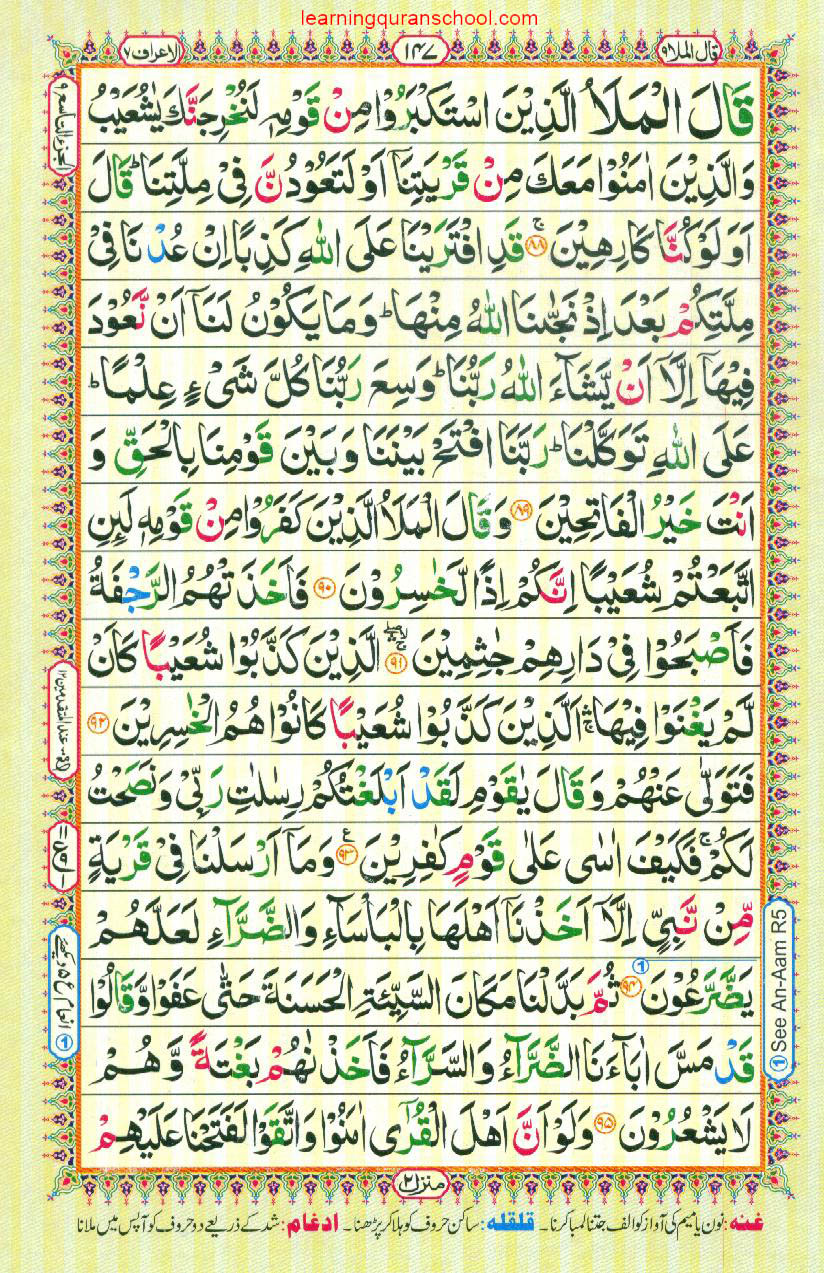 learningquranschool.com
قال الملا ٩
١٤٧
الاعراف ٧
قَالَ الْمَلَاُ الَّذِیْنَ اسْتَكْبَرُوْا مِنْ قَوْمِهٖ لَنُخْرِجَنَّكَ یٰشُعَیْبُ
وَالَّذِیْنَ اٰمَنُوْا مَعَكَ مِنْ قَرْیَتِنَاۤ اَوْ لَتَعُوْدُنَّ فِیْ مِلَّتِنَا ؕ قَالَ
اَوَلَوْ كُنَّا كَارِهِیْنَ ۚ﴿۸۸﴾ قَدِ افْتَرَیْنَا عَلَی اللّٰهِ كَذِبًا اِنْ عُدْنَا فِیْ
مِلَّتِكُمْ بَعْدَ اِذْ نَجّٰىنَا اللّٰهُ مِنْهَا ؕ وَمَا یَكُوْنُ لَنَاۤ اَنْ نَّعُوْدَ
فِیْهَاۤ اِلَّاۤ اَنْ یَّشَآءَ اللّٰهُ رَبُّنَا ؕ وَسِعَ رَبُّنَا كُلَّ شَیْءٍ عِلْمًا ؕ
عَلَی اللّٰهِ تَوَكَّلْنَا ؕ رَبَّنَا افْتَحْ بَیْنَنَا وَبَیْنَ قَوْمِنَا بِالْحَقِّ وَ
اَنْتَ خَیْرُ الْفَاتِحِیْنَ ﴿۸۹﴾ وَقَالَ الْمَلَاُ الَّذِیْنَ كَفَرُوْا مِنْ قَوْمِهٖ لَىِٕنِ
اتَّبَعْتُمْ شُعَیْبًا اِنَّكُمْ اِذًا لَّخٰسِرُوْنَ ﴿۹۰﴾ فَاَخَذَتْهُمُ الرَّجْفَةُ
فَاَصْبَحُوْا فِیْ دَارِهِمْ جٰثِمِیْنَ ﴿۹۱﴾ الَّذِیْنَ كَذَّبُوْا شُعَیْبًا كَاَنْ
لَّمْ یَغْنَوْا فِیْهَا ۛۚ اَلَّذِیْنَ كَذَّبُوْا شُعَیْبًا كَانُوْا هُمُ الْخٰسِرِیْنَ ﴿۹۲﴾
فَتَوَلّٰی عَنْهُمْ وَقَالَ یٰقَوْمِ لَقَدْ اَبْلَغْتُكُمْ رِسٰلٰتِ رَبِّیْ وَنَصَحْتُ
لَكُمْ ۚ فَكَیْفَ اٰسٰی عَلٰی قَوْمٍ كٰفِرِیْنَ ﴿۹۳﴾ وَمَاۤ اَرْسَلْنَا فِیْ قَرْیَةٍ
مِّنْ نَّبِیٍّ اِلَّاۤ اَخَذْنَاۤ اَهْلَهَا بِالْبَاْسَآءِ وَالضَّرَّآءِ لَعَلَّهُمْ
یَضَّرَّعُوْنَ ﴿۹۴﴾ ثُمَّ بَدَّلْنَا مَكَانَ السَّیِّئَةِ الْحَسَنَةَ حَتّٰی عَفَوْا وَّقَالُوْا
قَدْ مَسَّ اٰبَآءَنَا الضَّرَّآءُ وَالسَّرَّآءُ فَاَخَذْنٰهُمْ بَغْتَةً وَّهُمْ
لَا یَشْعُرُوْنَ ﴿۹۵﴾ وَلَوْ اَنَّ اَهْلَ الْقُرٰۤی اٰمَنُوْا وَاتَّقَوْا لَفَتَحْنَا عَلَیْهِمْ
الجزء التاسع ٩
① انعام ع ۵ دیکھئے
① See An-Aam R5
منزل ٢
غنه: نون یا میم کی آواز کو الف جتنا لمبا کرنا۔ قلقله: ساکن حروف کو ہلا کر پڑھنا۔ ادغام: شد کے ذریعے دو حروف کو آپس میں ملانا